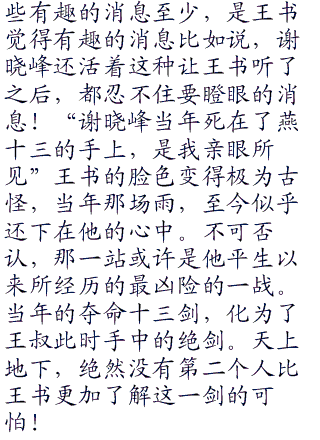 些有趣的消息至少，是王书
觉得有趣的消息比如说，谢
晓峰还活着这种让王书听了
之后，都忍不住要瞪眼的消
息！“谢晓峰当年死在了燕
十三的手上，是我亲眼所
见”王书的脸色变得极为古
怪，当年那场雨，至今似乎
还下在他的心中。不可否
认，那一站或许是他平生以
来所经历的最凶险的一战。
当年的夺命十三剑，化为了
王叔此时手中的绝剑。天上
地下，绝然没有第二个人比
王书更加了解这一剑的可
怕！